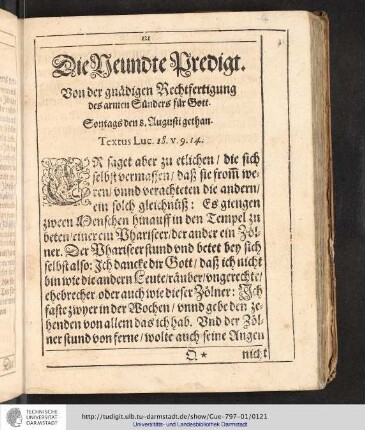 121
Die Neundte Predigt.
Von der gnädigen Rechtfertigung
des armen Sünders für Gott.
Sontags den 8. Augusti gethan.
Textus Luc. 18. v. 9. 14.
ER saget aber zu etlichen / die sich
selbst vermassen / daß sie from̃ we-
ren / vnnd verachteten die andern /
ein solch gleichnüß: Es giengen
zween Menschen hinauff in den Tempel zu
beten / einer ein Phariseer / der ander ein Zöl-
ner. Der Phariseer stund vnd betet bey sich
selbst also: Ich dancke dir Gott / daß ich nicht
bin wie die andern Leute / räuber / vngerechte /
ehebrecher oder auch wie dieser Zölner: Ich
faste zwyer in der Wochen / vnnd gebe den ze-
henden von allem das ich hab. Vnd der Zöl-
ner stund von ferne / wolte auch seine Augen
Q * nicht
TECHNISCHE
UNIVERSITÄT
DARMSTADT
http://tudigit.ulb.tu-darmstadt.de/show/Gue-797-01/0121
Universitäts- und Landesbibliothek Darmstadt